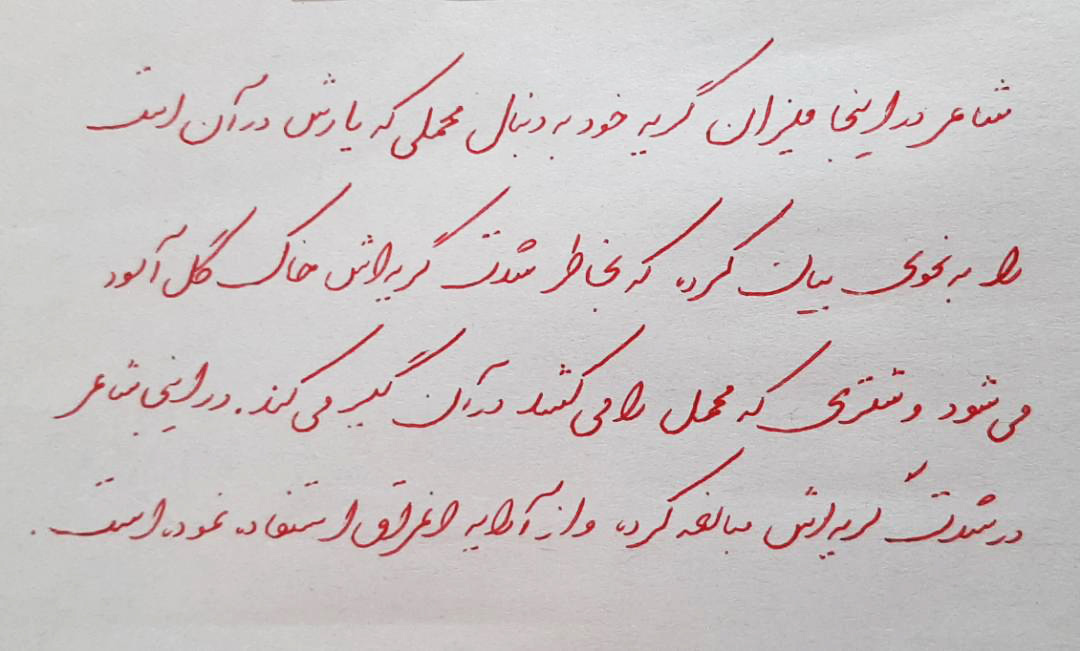 شاعر در اینجا میزان گریه خود به دنبال محملی که یارش در آن است
را به نحوی بیان کرده که بخاطر شدت گریه اش خاک گل آلود
می شود و شتری که محمل را می کشد در آن گیر می کند. در اینجا شاعر
در شدت گریه اش مبالغه کرده و از آرایه اغراق استفاده نموده است.